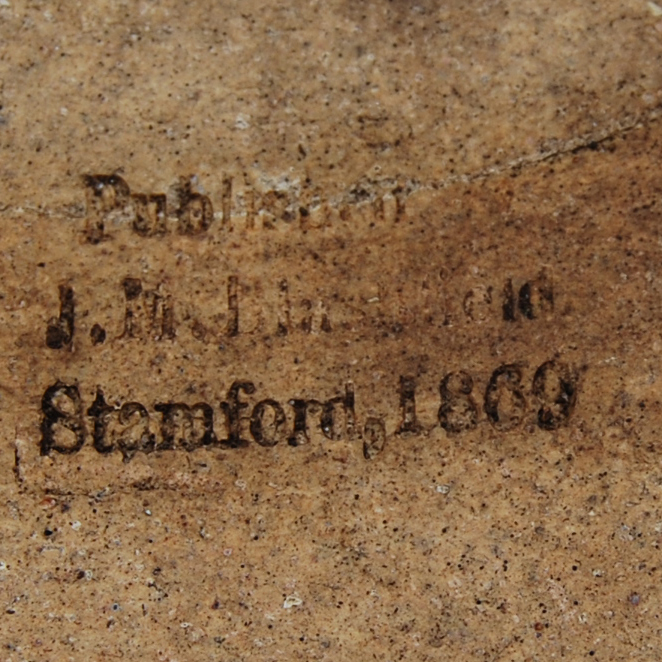 Published
J. M.
Stamford, 1869